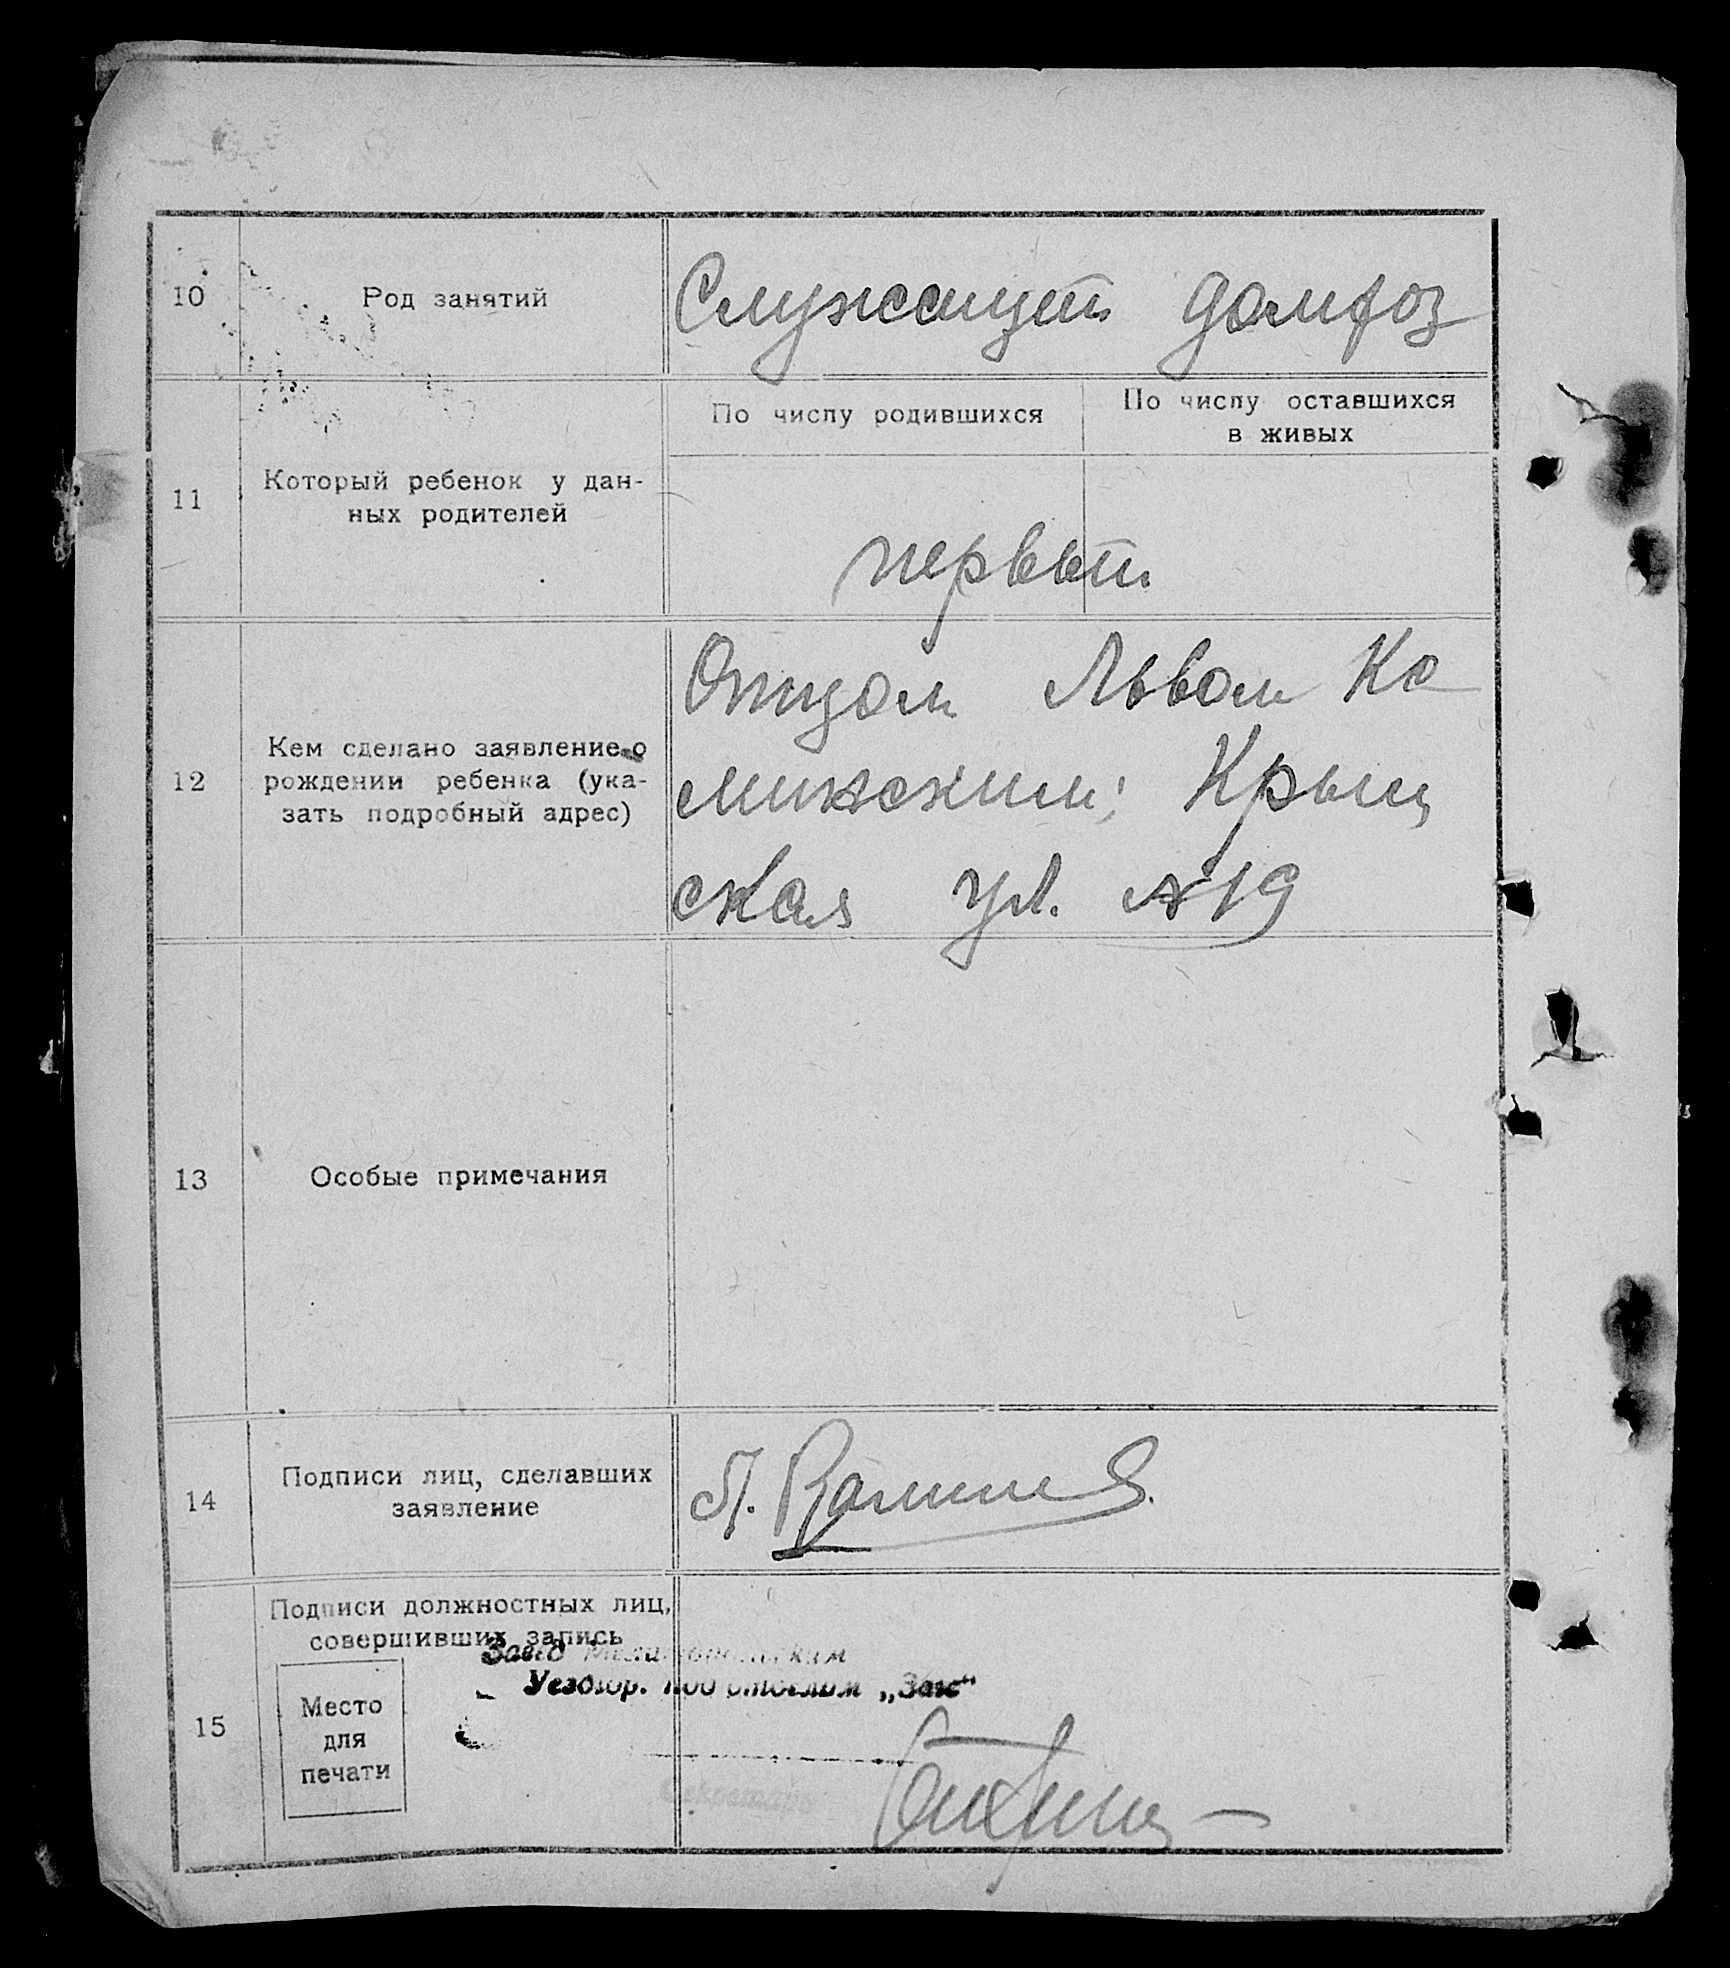 10
Род занятий
Служащий домхоз
11
Который ребенок у дан-
ных родителей
По числу родившихся
По числу оставшихся
в живых
первый
12
Кем сделано заявление о
рождении ребенка (ука-
зать подробный адрес)
Отцом Львом Ка
минским; Крым
ская ул. №19
13
Особые примечания
14
Подписи лиц, сделавших
заявление
Л.
15
Подписи должностных лиц,
совершивших запись
Место
для
печати
Завед
Уезогор. подотделом „Загс“
Секретарь